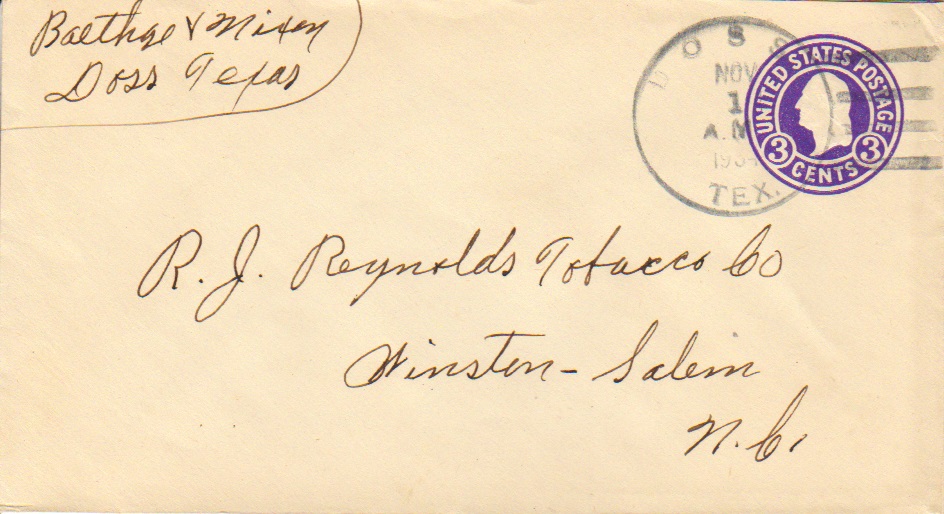 Baethge & Nixon
Doss Texas
DOSS
NOV
1
A.M
1934
TEX.
UNITED STATES POSTAGE
3 CENTS 3
R. J. Reynolds Tobacco Co
Winston-Salem
N.C.